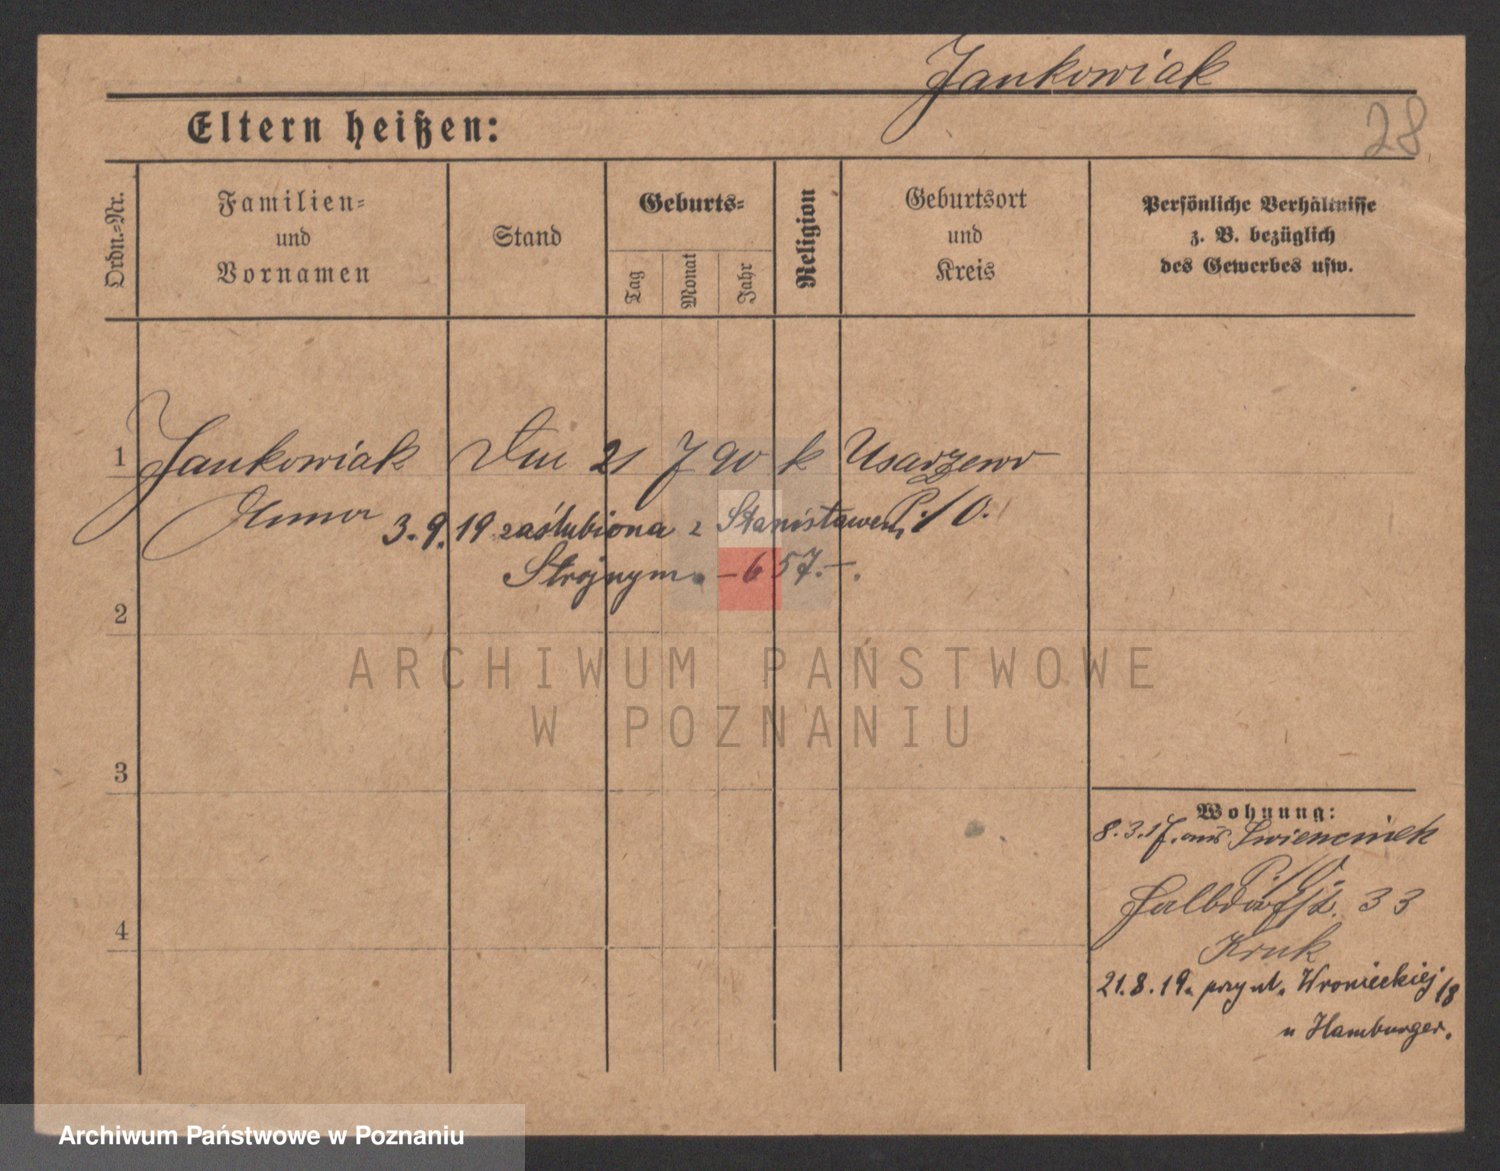 Jankowiak
28
Eltern heißen:
Ordn.-Nr.
Familien-
und
Vornamen
Stand
Geburts-
Tag
Monat
Jahr
Religion
Geburtsort
und
Kreis
Persönliche Verhältnisse
z. B. bezüglich
des Gewerbes usw.
1 Jankowiak 21 7 90 k Usarzewo
P./O.
3.9.19 zaślubiona z Stanisławem
Strojnym. – 657. –.
2
3
4
Wohnung:
8.3.17. aus
P./O.
Halbdorfst. 33
Kruk
21.8.19. przy ul. Wronieckiej 18
u Hamburger.
ARCHIWUM PAŃSTWOWE
W POZNANIU
Archiwum Państwowe w Poznaniu